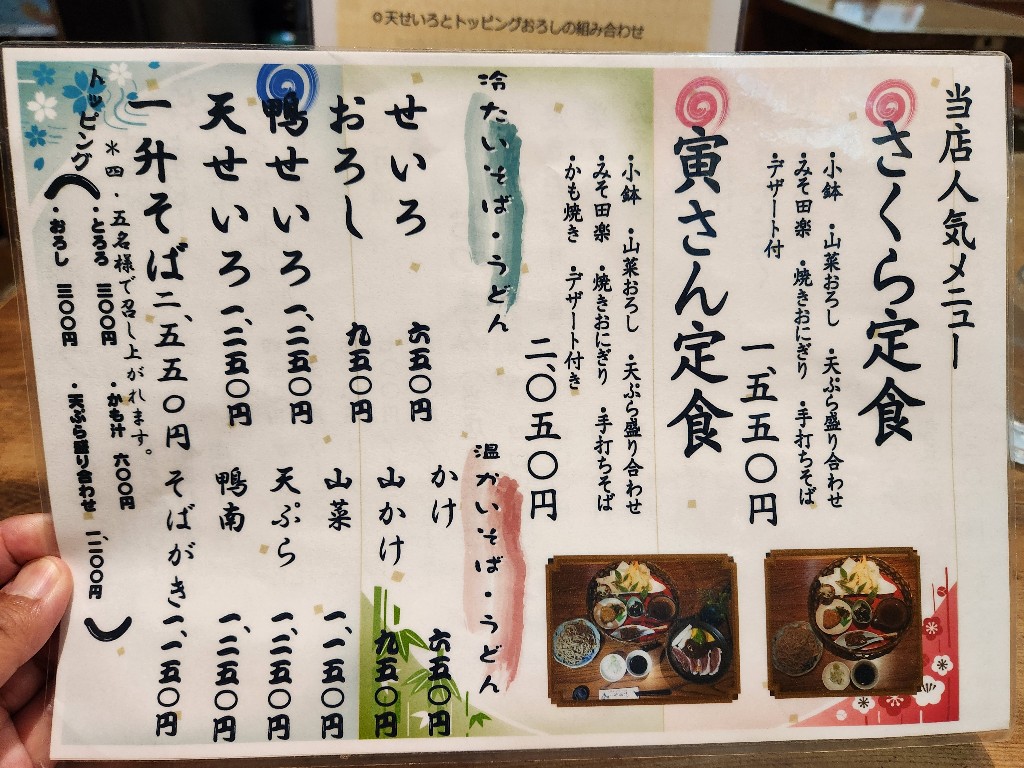 ◎天せいろとトッピングおろしの組み合わせ
当店人気メニュー
さくら定食
・小鉢 ・山菜おろし ・天ぷら盛り合わせ
・みそ田楽 ・焼きおにぎり ・手打ちそば
・デザート付
一、五五〇円
寅さん定食
・小鉢 ・山菜おろし ・天ぷら盛り合わせ
・みそ田楽 ・焼きおにぎり ・手打ちそば
・かも焼き ・デザート付き
二、〇五〇円
冷たいそば・うどん
せいろ 六五〇円
おろし 九五〇円
鴨せいろ 一、二五〇円
天せいろ 一、二五〇円
一升そば 二、五五〇円
＊四・五名様で召し上がれます。
温かいそば・うどん
かけ 六五〇円
山かけ 九五〇円
山菜 一、一五〇円
天ぷら 一、二五〇円
鴨南 一、二五〇円
そばがき 一、一五〇円
トッピング
・とろろ 三〇〇円 ・かも汁 六〇〇円
・おろし 三〇〇円 ・天ぷら盛り合わせ 一、二〇〇円